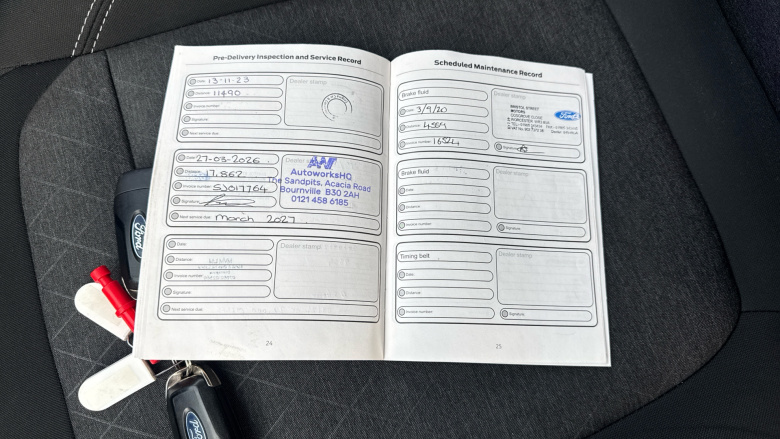 Pre-Delivery Inspection and Service Record
Date: 13-11-23
Dealer stamp
Distance: 11490
Invoice number:
Signature:
Next service due:
Date: 27-03-2026
Dealer
Distance: 17,862
Invoice number: SJ017764
Signature:
Next service due: March 2027
AutoworksHQ
The Sandpits, Acacia Road
Bournville B30 2AH
0121 458 6185
Date:
Dealer stamp
Distance:
Invoice number:
Signature:
Next service due:
24
Scheduled Maintenance Record
Brake fluid
Dealer stamp
Date: 3/9/20
Distance:
Invoice number:
BRISTOL STREET
MOTORS
Ford
Signature:
Brake fluid
Dealer stamp
Date:
Distance:
Invoice number:
Signature:
Timing belt
Dealer stamp
Date:
Distance:
Invoice number:
Signature:
25
Ford
Ford